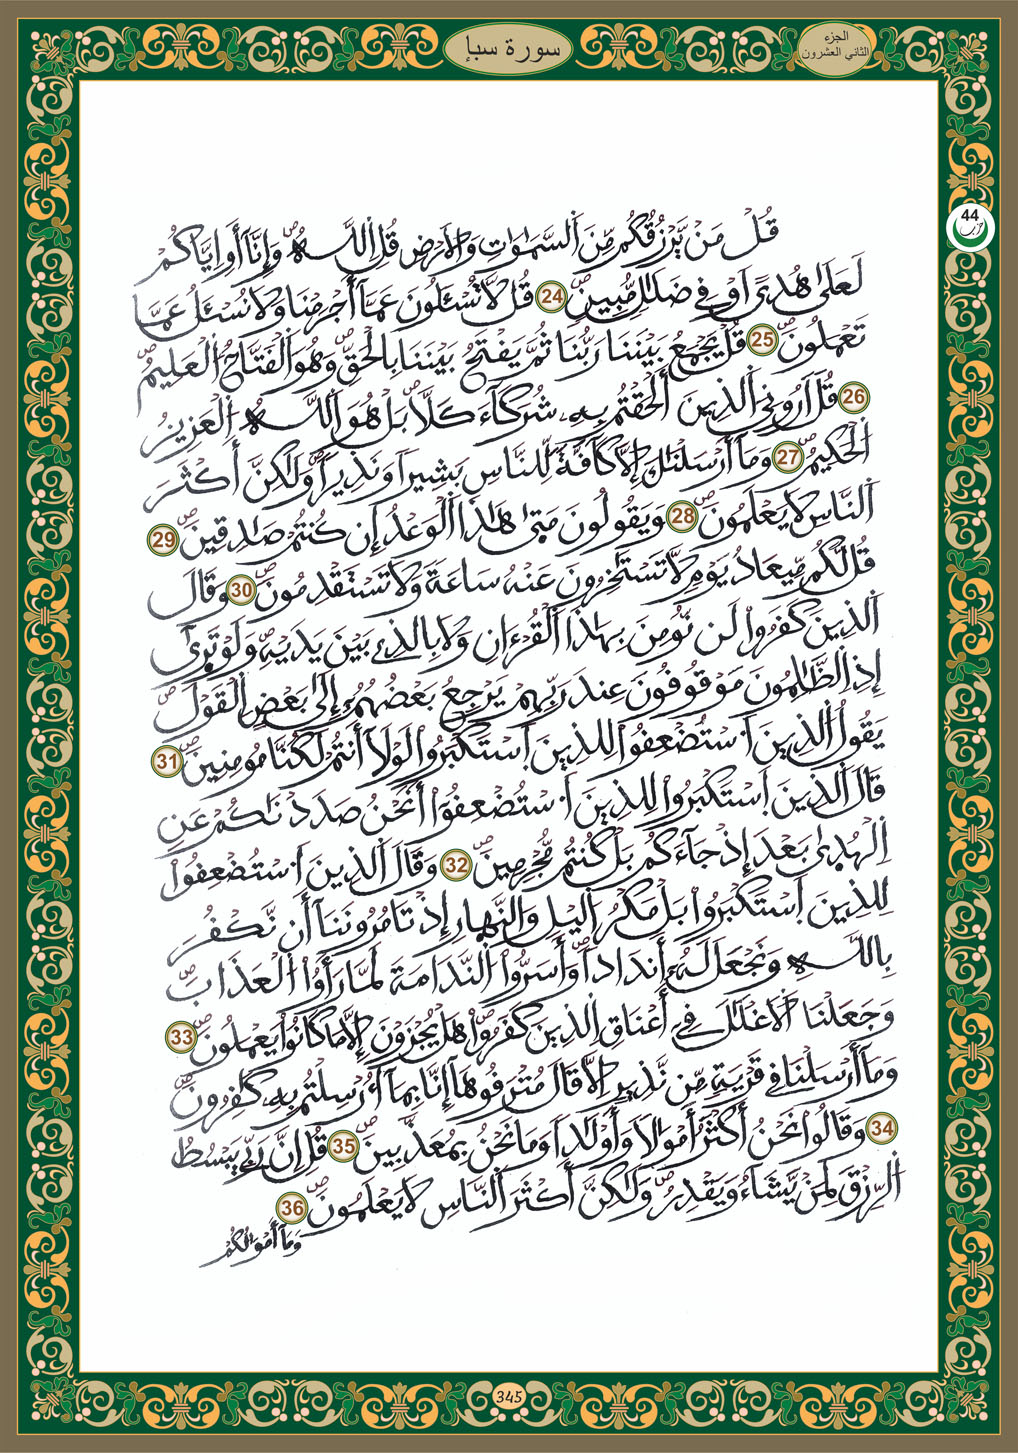 سورة سبإ
الجزء
الثاني العشرون
44
حزب
قُلْ مَنْ يَّرْزُقُكُم مِّنَ اَ۬لسَّمَٰوَٰتِ وَالَارْضِ قُلِ اِ۬للَّهُ صٜ وَإِنَّآ أَوِ اِيَّاكُمْ
لَعَلَىٰ هُدًى اَوْ فِے ضَلَٰلٖ مُّبِينٖ صٜ 24 قُل لَّا تُسْـَٔلُونَ عَمَّآ أَجْرَمْنَا وَلَا نُسْـَٔلُ عَمَّا
تَعْمَلُونَ صٜ 25 قُلْ يَجْمَعُ بَيْنَنَا رَبُّنَا ثُمَّ يَفْتَحُ بَيْنَنَا بِالْحَقِّ صٜ وَهُوَ اَ۬لْفَتَّاحُ اُ۬لْعَلِيمُ صٜ
26 قُلَ اَرُونِيَ اَ۬لذِينَ أَلْحَقْتُم بِهِۦ شُرَكَآءَ كَلَّا صٜ بَلْ هُوَ اَ۬للَّهُ اُ۬لْعَزِيزُ
اُ۬لْحَكِيمُ صٜ 27 وَمَآ أَرْسَلْنَٰكَ إِلَّا كَآفَّةٗ لِّلنَّاسِ بَشِيراٗ وَنَذِيراٗ صٜ وَلَٰكِنَّ أَكْثَرَ
اَ۬لنَّاسِ لَا يَعْلَمُونَ صٜ 28 وَيَقُولُونَ مَتَىٰ هَٰذَا اَ۬لْوَعْدُ إِن كُنتُمْ صَٰدِقِينَ صٜ 29
قُل لَّكُم مِّيعَادُ يَوْمٖ لَّا تَسْتَٰخِرُونَ عَنْهُ سَاعَةٗ وَلَا تَسْتَقْدِمُونَ صٜ 30 وَقَالَ
اَ۬لذِينَ كَفَرُواْ لَن نُّومِنَ بِهَٰذَا اَ۬لْقُرْءَانِ وَلَا بِالذِے بَيْنَ يَدَيْهِ صٜ وَلَوْ تَرَىٰٓ
إِذِ اِ۬لظَّٰلِمُونَ مَوْقُوفُونَ عِندَ رَبِّهِمْ يَرْجِعُ بَعْضُهُمُۥٓ إِلَىٰ بَعْضٍ اِ۬لْقَوْلَ صٜ
يَقُولُ اُ۬لذِينَ اَ۟سْتُضْعِفُواْ لِلذِينَ اَ۪سْتَكْبَرُواْ لَوْلَآ أَنتُمْ لَكُنَّا مُومِنِينَ صٜ 31
قَالَ اَ۬لذِينَ اَ۪سْتَكْبَرُواْ لِلذِينَ اَ۟سْتُضْعِفُوٓاْ أَنَحْنُ صَدَدْنَٰكُمْ عَنِ
اِ۬لْهُدَىٰ بَعْدَ إِذْ جَآءَكُم بَلْ كُنتُم مُّجْرِمِينَ صٜ 32 وَقَالَ اَ۬لذِينَ اَ۟سْتُضْعِفُواْ
لِلذِينَ اَ۪سْتَكْبَرُواْ بَلْ مَكْرُ اُ۬ليْلِ وَالنَّهِارِ إِذْ تَامُرُونَنَآ أَن نَّكْفُرَ
بِاللَّهِ وَنَجْعَلَ لَهُۥٓ أَندَاداٗ صٜ وَأَسَرُّواْ اُ۬لنَّدَامَةَ لَمَّا رَأَوُاْ اُ۬لْعَذَابَ صٜ
وَجَعَلْنَا اَ۬لَاغْلَٰلَ فِےٓ أَعْنَاقِ اِ۬لذِينَ كَفَرُواْ صٜ هَلْ يُجْزَوْنَ إِلَّا مَا كَانُواْ يَعْمَلُونَ صٜ 33
وَمَآ أَرْسَلْنَا فِے قَرْيَةٖ مِّن نَّذِيرٍ اِلَّا قَالَ مُتْرَفُوهَآ إِنَّا بِمَآ أُرْسِلْتُم بِهِۦ كَٰفِرُونَ صٜ
34 وَقَالُواْ نَحْنُ أَكْثَرُ أَمْوَٰلاٗ وَأَوْلَٰداٗ وَمَا نَحْنُ بِمُعَذَّبِينَ صٜ 35 قُلِ اِنَّ رَبِّے يَبْسُطُ
اُ۬لرِّزْقَ لِمَنْ يَّشَآءُ وَيَقْدِرُ صٜ وَلَٰكِنَّ أَكْثَرَ اَ۬لنَّاسِ لَا يَعْلَمُونَ صٜ 36
وَمَآ أَمْوَٰلُكُمْ
345